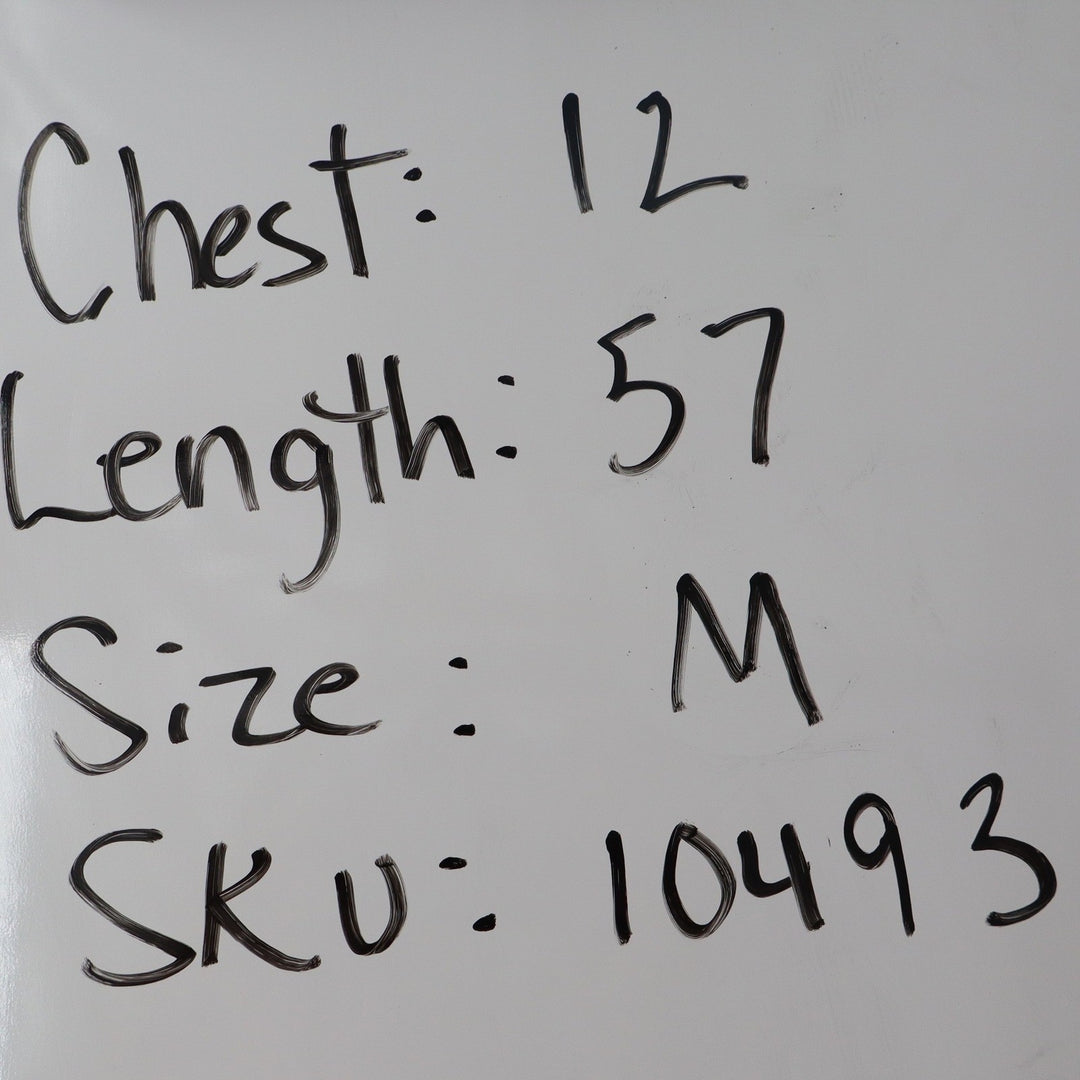 Chest: 12
Length: 57
Size: M
SKU: 10493